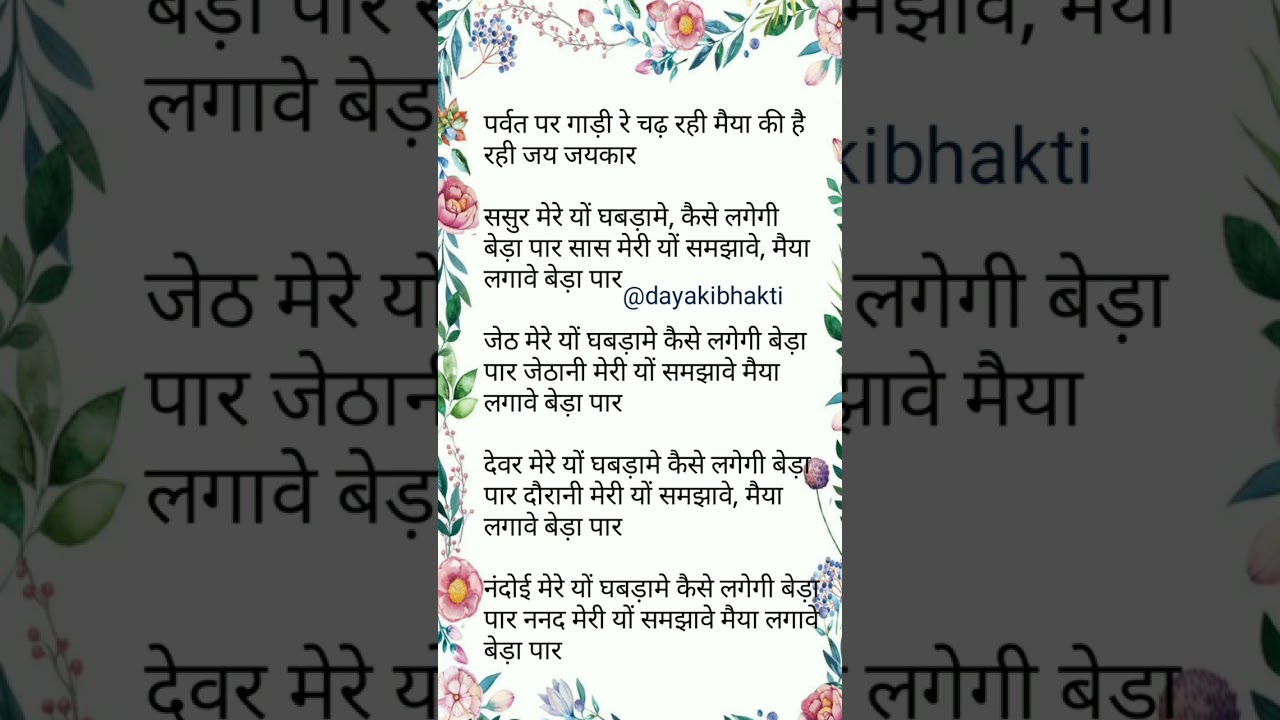 पर्वत पर गाड़ी रे चढ़ रही मैया की है
रही जय जयकार
ससुर मेरे यों घबड़ामे, कैसे लगेगी
बेड़ा पार सास मेरी यों समझावे, मैया
लगावे बेड़ा पार
@dayakibhakti
जेठ मेरे यों घबड़ामे कैसे लगेगी बेड़ा
पार जेठानी मेरी यों समझावे मैया
लगावे बेड़ा पार
देवर मेरे यों घबड़ामे कैसे लगेगी बेड़ा
पार दौरानी मेरी यों समझावे, मैया
लगावे बेड़ा पार
नंदोई मेरे यों घबड़ामे कैसे लगेगी बेड़ा
पार ननद मेरी यों समझावे मैया लगावे
बेड़ा पार